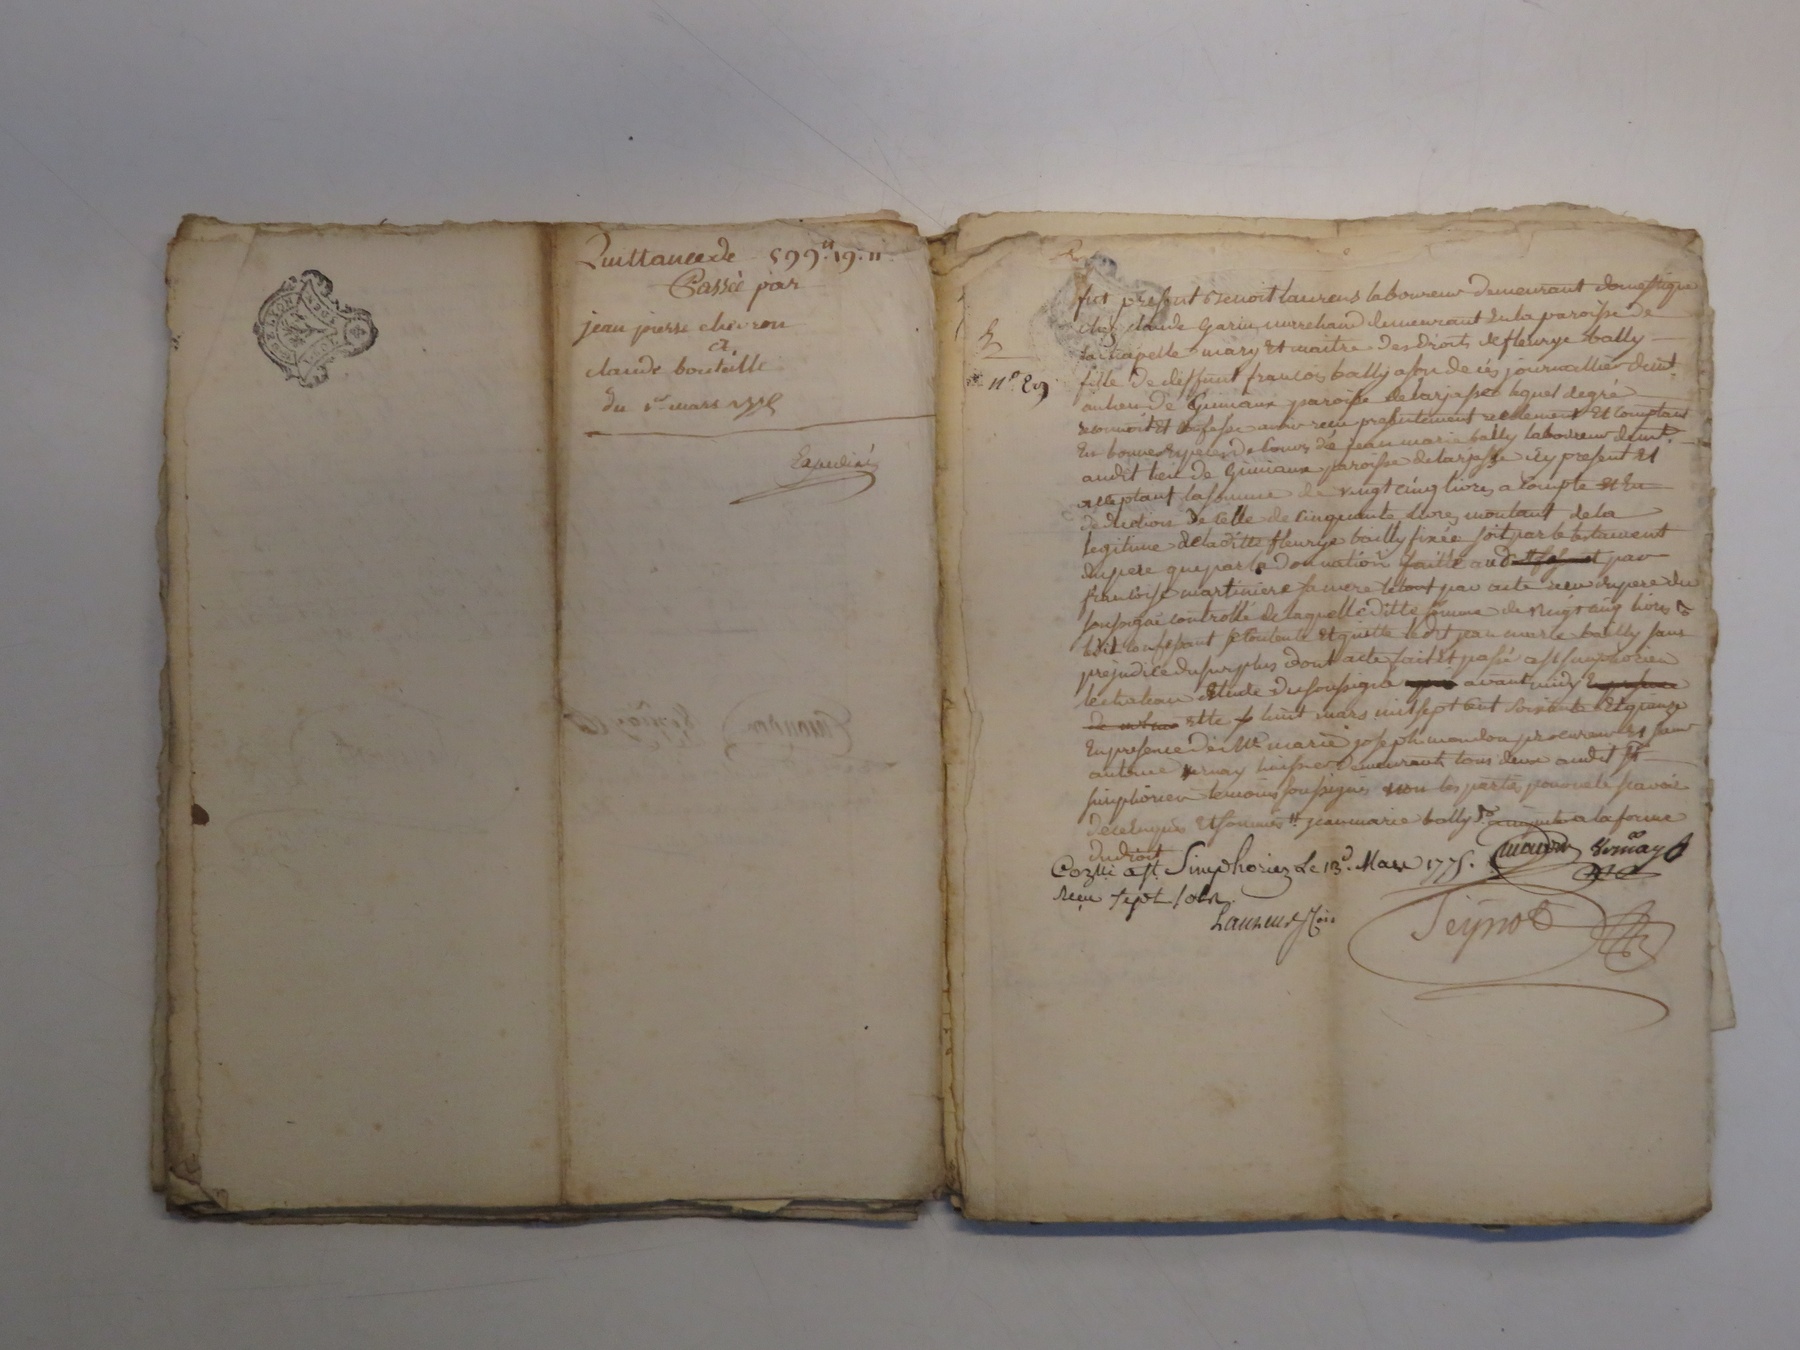 Quittance de 599ᴴ. 19. 11.
Passée par
jean pierre chevron
A
claude bouteille
du 1er mars 1775
Expediée
fut present Benoit laurens laboureur demeurant domestique
chez claude Garin marchand demeurant en la paroisse de
la chapelle mary et maitre des droits de fleurye bally
fille de deffunt francois bally a son decés journallier demt.
au lieu de Gimiaux paroisse de larjasse lequel de gré
reconnoit et confesse avoir recu presentement reellement et comptant
En bonnes Especes de cours de jean marie bally laboureur demt.
audit lieu de Gimiaux paroisse de larjasse icy present et
acceptant la somme de vingt cinq livres a compte et En
deduction de celle de cinquante livres montant de la
legitime de laditte fleurye bailly fixée soit par le testament
du pere que par la donnation faitte par
francoise martiniere sa mere le tout par acte recu du pere du
soussigné controllé de laquelle ditte somme de vingt cinq livres
ledit confessant se contente et quitte ledit jean marie bailly sans
prejudice du surplus dont acte fait et passé a st simphorien
le chateau etude du soussigné avant midy
le huit mars mil sept cent soixante et quinze
En presence de Me marie joseph mandon procureur et sieur
antoine vernay huissier demeurants tous deux audit st
simphorien temoins soussignés non les parties pour ne le scavoir
de ce Enquis et sommés jean marie bally a la forme
du droit
Colle a St. Simphorien Le 13e. Mars 1775.
recu sept sols
Vernay
Nº 29
Peynot